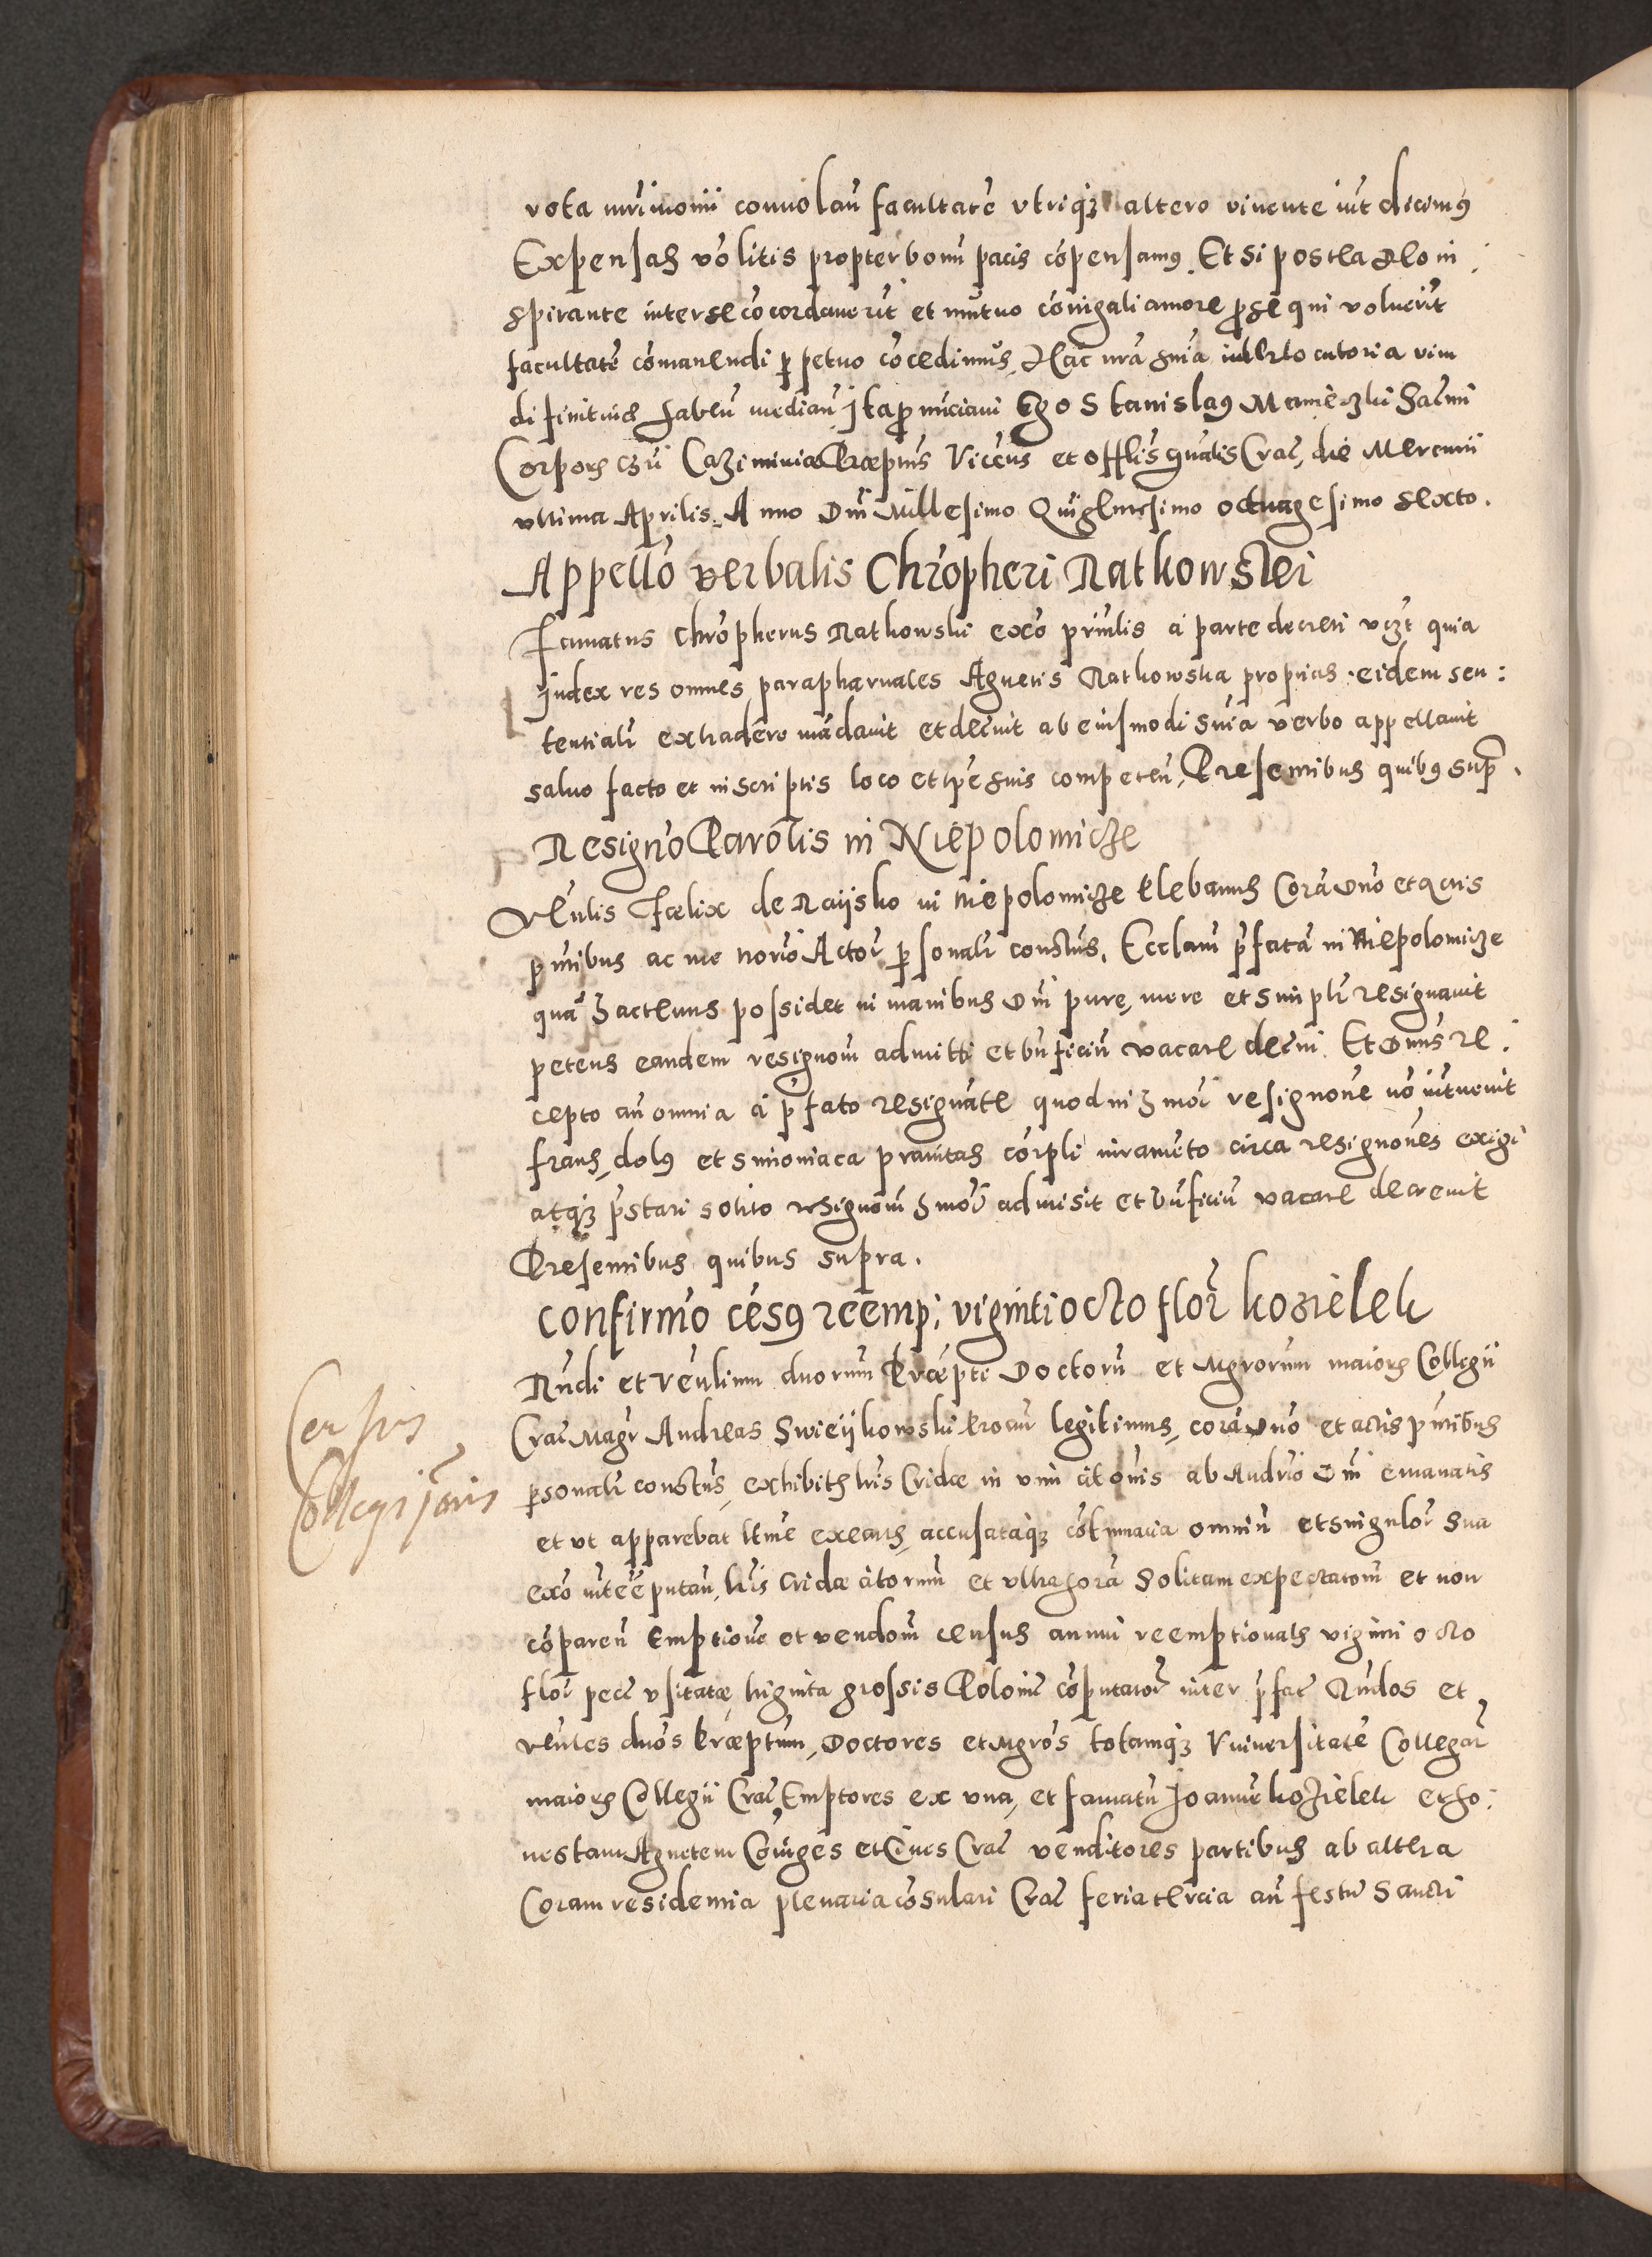 vota mr̃imonii conuolan̄ facultatē vtriq̃ꝫ altero viuente int̃dicim9
Expensas vō litis propter bonū pacis cōpensam9. Et si postea Deo in
spirante inter se cōcordauerīt et mutuo cōiugali amore ꝓsequi voluerīt
facultatē cōmanendi ꝑpetuo cōcedimus, Hac nr̃a sn̄ia interlocutoria vim
difinitiuæ haben̄ median̄ Ita ꝓnūciaui Ego Stanislaus Manieczki Sac̃mi
Corporis Chr̃i Cazimiriæ Præptus Vicēus et offlis gn̄alis Crac̃, die Mercurii
vltima Aprilis. Anno Dni Millesimo Quīgentesimo octuagesimo sexto.
Appellõ verbalis Chrõpheri Ratkowskei
Famatus Chrõpherus Ratkowski exõ prīnlis a parte decreti vcꝫt quia
Judex res omnes parapharnales Agnetis Ratkowska proprias eidem sen:
tentialr̃ extradere mādauit et decr̃uit ab eiusmodi sn̄ia verbo appellauit
saluo facto et in scriptis loco et tp̄e suis competen̄, Presentibus quib9 sup̃.
Resignõ Parõlis in Niepolomicze
Vēnlis Fœlix de Raijsko in Niepolomicze Plebanus Corā Dno et actis
p̄ntibus ac me norīo Actor̃ ꝑsonalr̃ constus. Ecclam p̄fatā in Niepolomicze
quā hactenus possidet in manibus Dni pure, mere et simplr̃ resignauit
petens eandem resignom̄ admitti et bn̄ficiū vacare decr̃ni Et Dnus re
cepto an̄ omnia a p̄fato resignāte quod in hmōi resignone nō int̃uenit
fraus, dol9 et simoniaca prauitas corpli iuramēto circa resignones exigi
atqꝫ p̄stari solito resignom̄ hmōi admisit et bn̄ficiū vacare decreuit
Presentibus quibus supra.
Confirmõ cēs9 reēmp: viginti octo flor̃ kozielek
Rn̄di et Vēnlium duorum Præpti Doctorū et Mgrorum maioris Collegii
Crac̃ Magr̃ Andreas Swieijkowski procur̃ legitimus, corā Dno et actis p̄ntibus
ꝑsonalr̃ constus, exhibitis lr̃is Cridæ in vim citonis ab Audrīo Dni emanatis
et vt apparebat ltīme execūs, accusataqꝫ cōtumacia omniū et singulor̃ sua
exõ intēe putan̄, lr̃is cridæ citorum et vltra horā solitam expectatorū et non
cōparen̄ Emptione et vendom̄ census annui reemptionalis viginti octo
flor̃ pec̃ vsitatæ, triginta grossis Polonic̃ cōputator̃ inter p̄fat̃ Rn̄dos et
vēnles duos Præptum, Doctores et Mgros totamqꝫ Vniuersitatē Collegar̃
maioris Collegii Crac̃ Emptores ex vna, et famatū Joannē kozielek et ho:
nestam Agnetem Cōiuges et Ciues Crac̃ venditores partibus ab altera
Coram residentia plenaria cōsulari Crac̃ feria tercia an̄ festū Sancti
Census
Collegij maioris